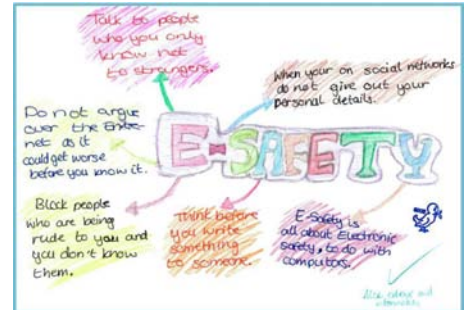 Talk to people
who you only
know not
to strangers.
When your on social networks
do not give out your
personal details.
Do not argue
over the
net as it
could get worse
before you know it.
E-SAFETY
Block people
who are being
rude to you and
you don't know
them.
Think before
you write
something
to someone.
E-Safety is
all about Electronic
safety, to do with
computors.